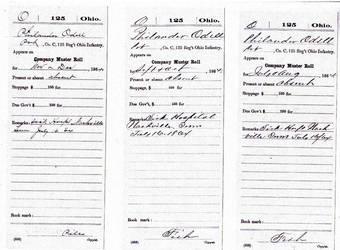 O 125 Ohio.
Philander Odell
Co. C, 125 Reg't Ohio Infantry.
Appears on
Company Muster Roll
for Nov & Dec, 1864
Present or absent absent
Stoppage, $ 100 for
Due Gov't, $ 100 for
Remarks: Nashville
July
Book mark:
Copyist.
O 125 Ohio.
Philander Odell
Pvt, Co. C, 125 Reg't Ohio Infantry.
Appears on
Company Muster Roll
for Sept & Oct, 1864
Present or absent absent
Stoppage, $ 100 for
Due Gov't, $ 100 for
Remarks: Sick Hospital
Nashville Tenn
July 16 1864
Book mark:
Fish
Copyist.
O 125 Ohio.
Philander Odell
Pvt, Co. C, 125 Reg't Ohio Infantry.
Appears on
Company Muster Roll
for July & Aug, 1864
Present or absent absent
Stoppage, $ 100 for
Due Gov't, $ 100 for
Remarks: Sick Nash
ville Tenn July 16/64
Book mark:
Fish
Copyist.